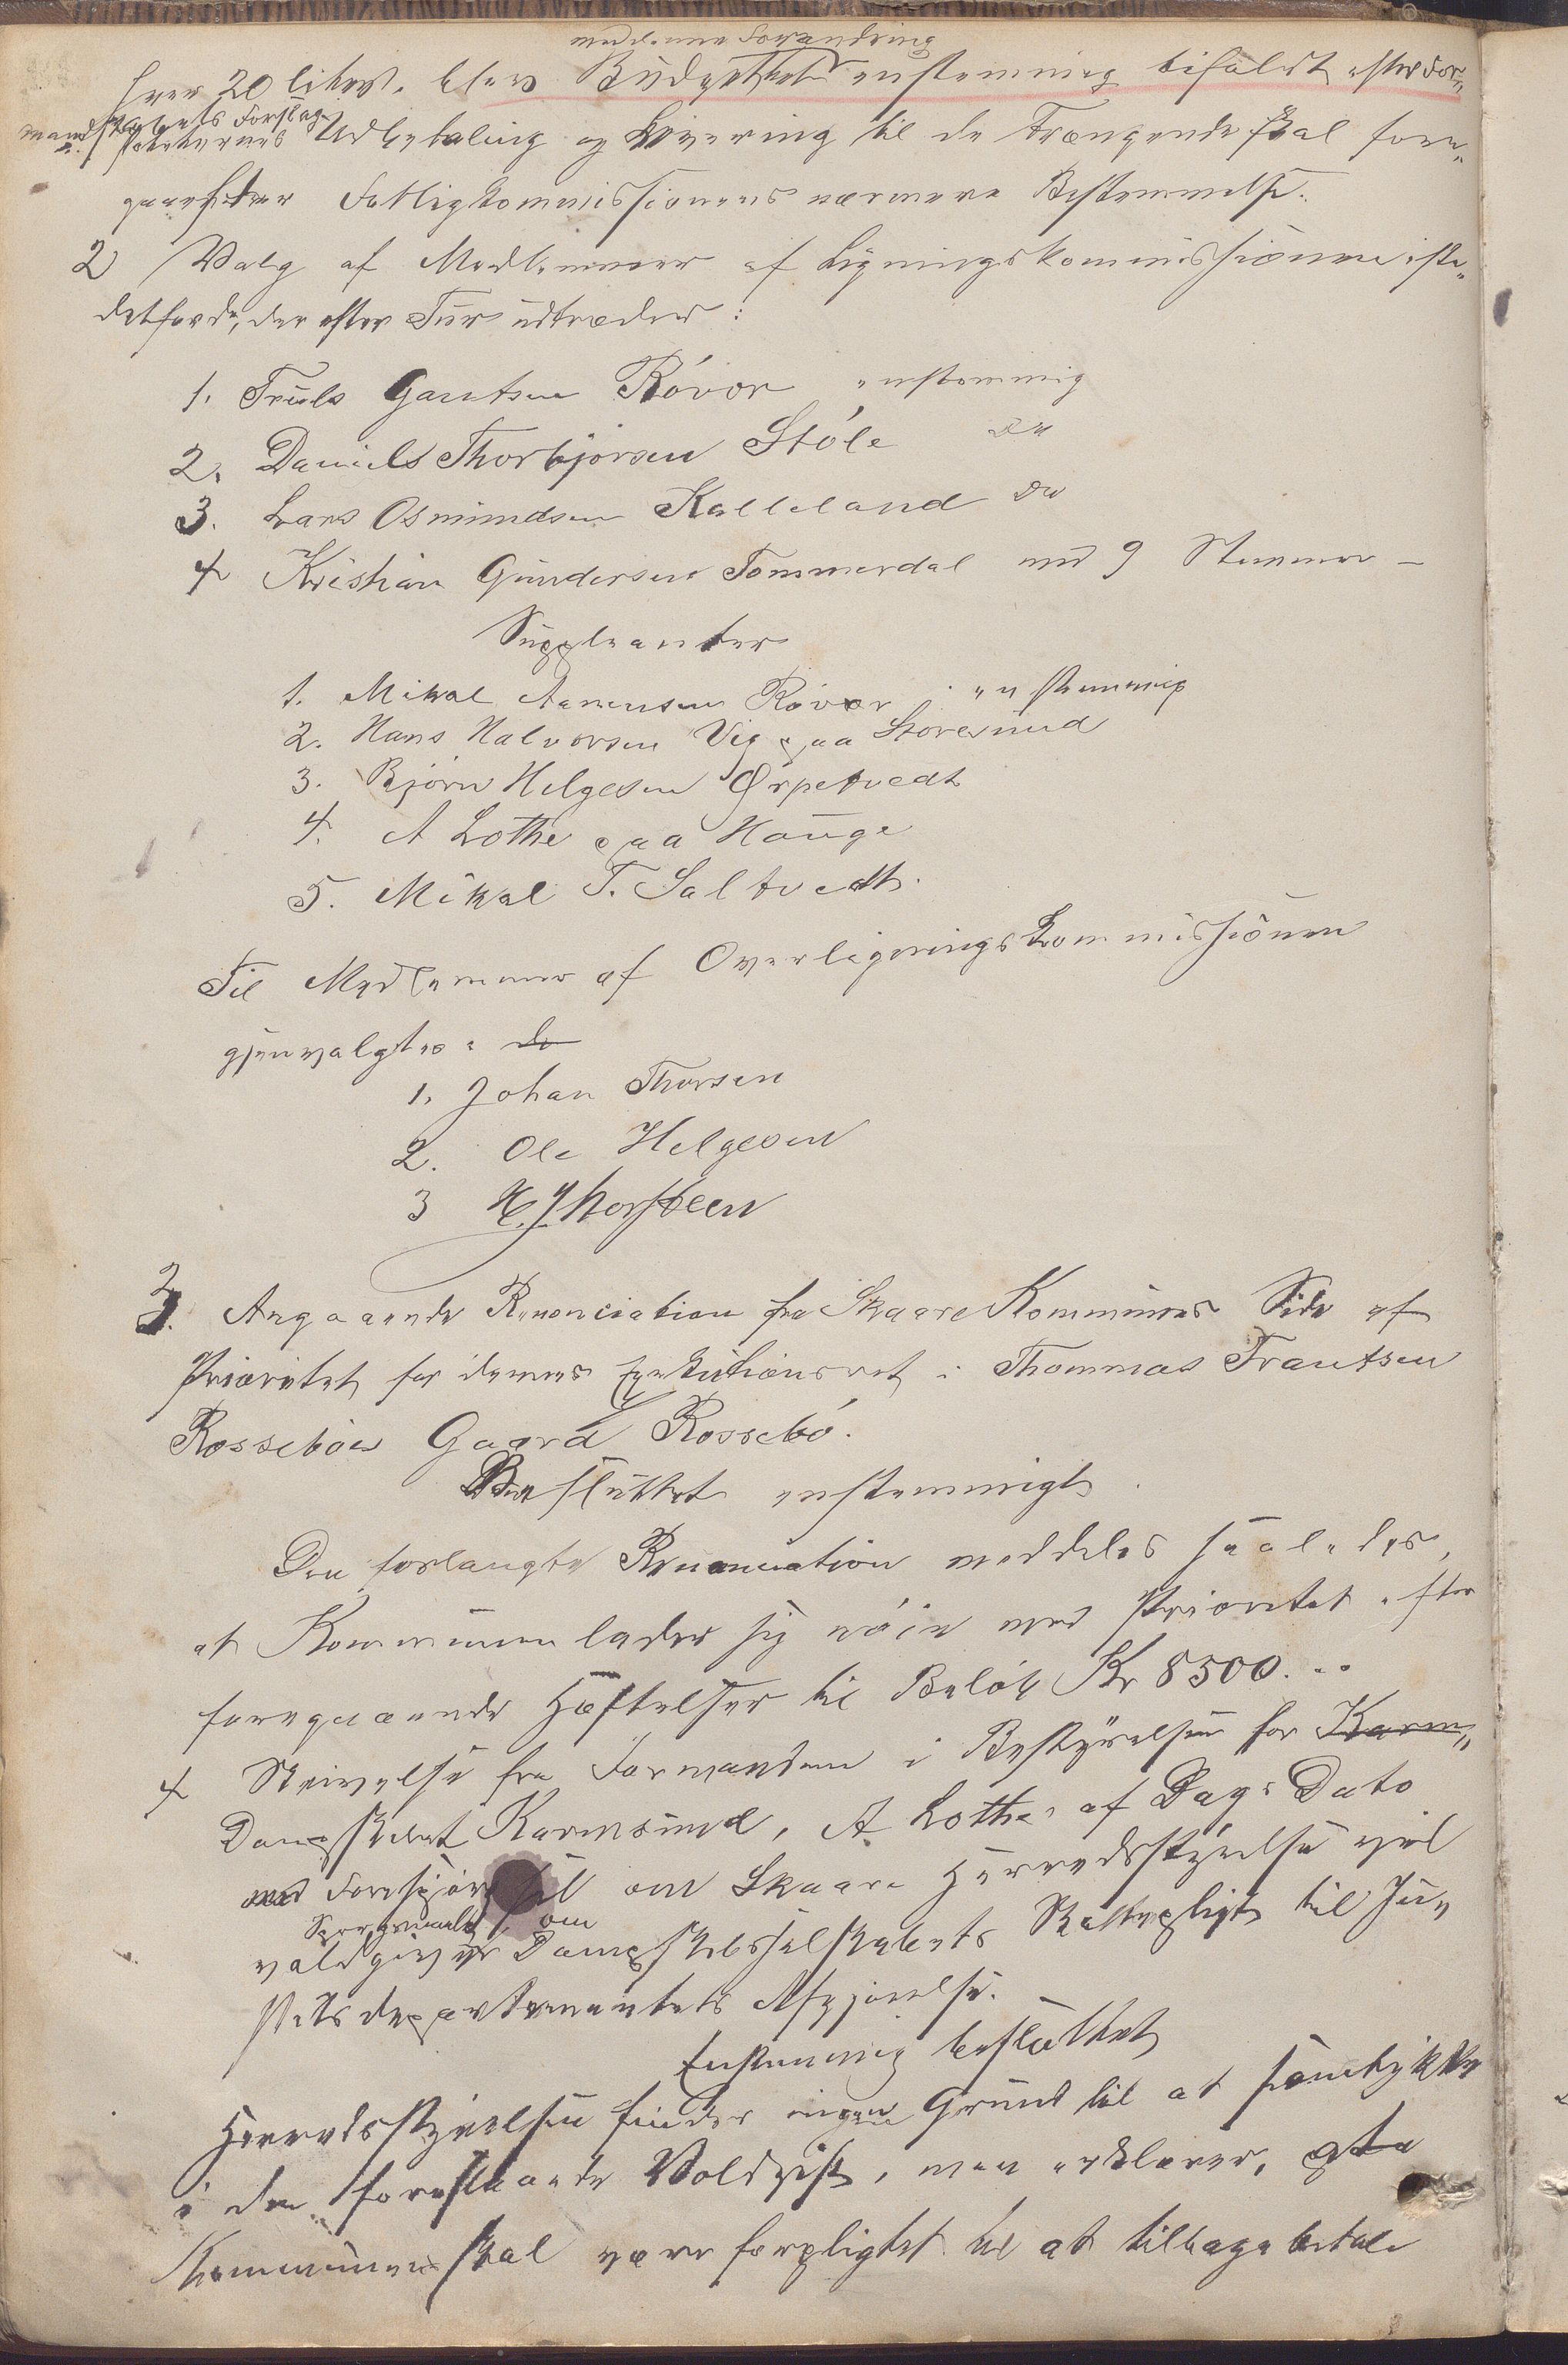 med denne Forandring
hver 20 liter. blev Budgettet enstemmig bifaldt efter For-
mandskabets Forslag.
Udbetaling og Levering til de Trængende skal fore-
gaa efter Fattigkommissionens nærmere Bestemmelse.
2 Valg af Medlemmer af Ligningskommissionen iste-
detfor de, der efter Tur udtræder:
1. Truls Gautsen Røvær enstemmig
2. Daniels Thorbjørsen Støle do
3. Lars Osmundsen Kalleland do
4 Kristian Gundersen Tømmerdal med 9 Stemmer –
Suppleanter
1. Mikal Aamundsen Røvær enstemmig
2. Hans Halvorsen Vig paa Storesund
3. Bjørn Helgesen Ørpetvedt
4. A Lothe paa Hauge
5. Mikal T. Saltvedt.
Til Medlemmer af Overligningskommissionen
gjenvalgtes: de
1. Johan Thorsen
2. Ole Helgesen
3 H. Thorsteen
3. Angaaende Renonciation fra Skaare Kommunes Side af
Prioritet for dennes Exekutionsret i Thommas Trautsen
Rossebøes Gaard Rossebø.
Besluttet enstemmigt.
Den forlangte Renonciation meddeles saaledes,
at Kommunen lader sig nøie med Prioritet efter
foregaaende Hæftelser til Beløb Kr 8500...
4 Skrivelse fra Formanden i Bestyrelsen for Karm-
Dampskibet Karmsund, A Lothe, af Dags Dato
med Forespørgsel om Skaare Herredsstyrelse vil
Spørgsmaalet om
voldgive Dampskibsselskabets Skattepligt til Ju-
stitsdepartementets Afgjørelse.
Enstemmig besluttet
Herredsstyrelsen finder ingen Grund til at samtykke
i den foreslaaede Voldgift, men erklærer, at
Kommunen skal være forpligtet til at tilbagebetale